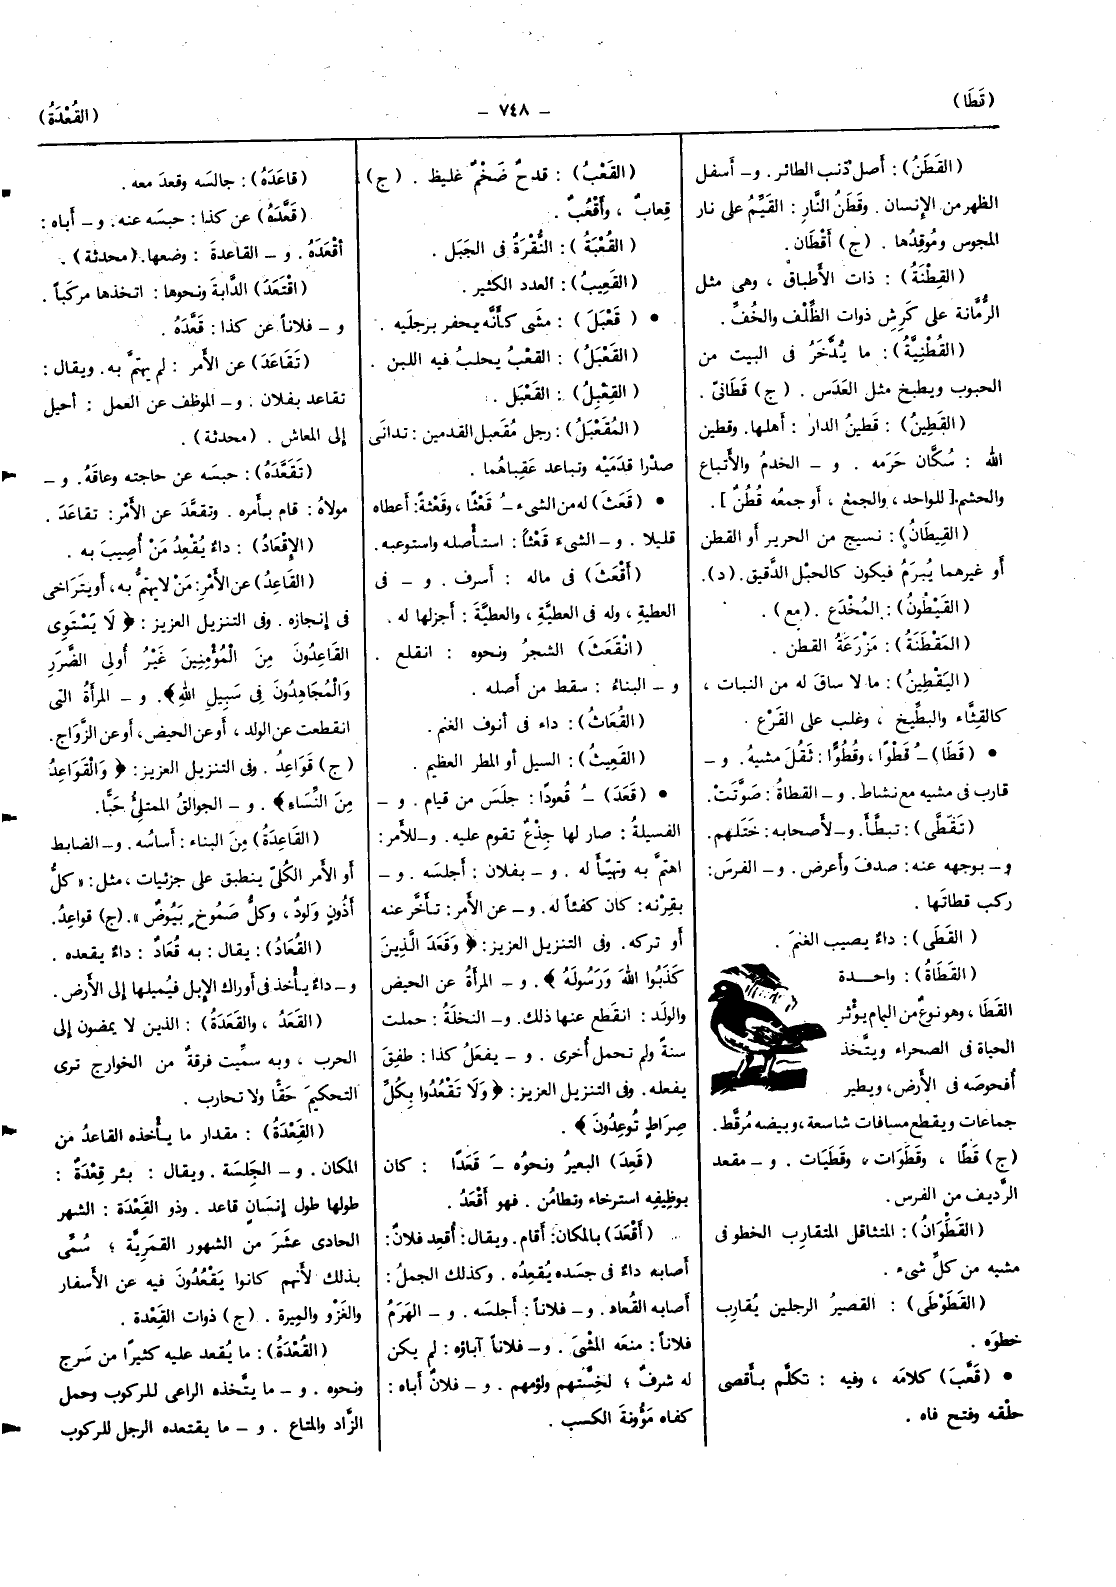 (قَطَا)
- ٧٤٨ -
(القُعْدَةُ)
(القَطَنُ) : أصل ذنب الطائر . و- أسفل
الظهر من الإنسان . وقَطَنُ النَّارِ : القَيِّمُ على نار
المجوس ومُوقِدُها . (ج) أقْطَان.
(القِطْنَةُ) : ذات الأطباق ، وهى مثل
الرُّمَّانة على كَرِشِ ذوات الظِّلْف والخُفِّ .
(القُطْنِيَّةُ) : ما يُدَّخَرُ فى البيت من
الحبوب ويطبخ مثل العَدَس . (ج) قَطَانىّ .
(القَطِينُ) : قَطينُ الدار : أهلها. وقطين
الله : سُكَّان حَرَمه . و - الخدمُ والأتباع
والحشم.[ للواحد ، والجمع ، أو جمعُه قُطُنٌ ] .
(القِيطَانُ) : نسيج من الحرير أو القطن
أو غيرهما يُبرَمُ فيكون كالحبْل الدَّقيق . (د).
(القَيْطُونُ) : المُخْدَع . (مع) .
(المَقْطَنَةُ) : مَزْرَعَةُ القطن .
(اليَقْطِينُ) : ما لا ساقَ له من النبات ،
كالقِثَّاء والبطِّيخ ، وغلب على القَرْع .
• (قَطَا) ـُ قَطْوًا ، وقُطُوًّا : ثَقُلَ مشيهُ . و -
قارب فى مشيه مع نشاط . و- القطاةُ : صَوَّتَتْ .
(تَقَطَّى) : تبطَّأ . و- لأصحابه : خَتَلهم .
و- بوجهه عنه : صدفَ وأعرض . و- الفرسَ :
ركب قطاتَها .
(القَطَى) : داءٌ يصيب الغنمَ .
(القَطَاةُ) : واحـدة
القَطَا ، وهو نوعٌ من اليمام يؤْثر
الحياة فى الصحراء ويتَّخذ
أفحوصَه فى الأرض، ويطير
جماعات ويقطع مسافات شاسعة، وبيضه مُرقَّط .
(ج) قَطًا ، وقَطَوَات ، وقَطَيَات . و - مقعد
الرَّديف من الفرس .
(القَطَوَانُ) : المتثاقل المتقارِب الخطو فى
مشيه من كلِّ شىء .
(القَطَوْطَى) : القصيرُ الرجلين يُقارِب
خطوَه .
• (قَعَّبَ) كلامَه ، وفيه : تكلَّم بأقصى
حلْقه وفتح فاه .
(القَعْبُ) : قدحٌ ضَخْمٌ غليظ . (ج)
قِعابٌ ، وأَقْعُبٌ .
(القُعْبَةُ) : النُّقْرَةُ فى الجَبَل .
(القَعِيبُ) : العدد الكثير .
• (قَعْبَلَ) : مشَى كأنَّه يحفر برجلَيه .
(القَعْبَلُ) : القعْبُ يحلبُ فيه اللبن .
(القِعْبِلُ) : القَعْبَل .
(المُقَعْبَلُ) : رجل مُقَعبل القدمين : تدانَى
صدْرا قدمَيْه وتباعد عَقِباهُما .
• (قَعَثَ) له من الشىء ـَُ قَعْثًا ، وقَعْثةً : أعطاه
قليلا . و- الشىءَ قَعْثاً : استأْصله واستوعبه .
(أَقْعَثَ) فى ماله : أسرف . و - فى
العطية ، وله فى العطيَّةِ ، والعطيَّةَ : أجزلها له .
(انْقَعَثَ) الشجرُ ونحوه : انقلع .
و- البناءُ : سقط من أصله .
(القُعَاثُ) : داء فى أنوف الغنم .
(القَعِيثُ) : السيل أو المطر العظيم .
• (قَعَدَ) ـُ قُعودًا : جلَسَ من قيام . و -
الفسيلةُ : صار لها جِذْعٌ تقوم عليه . و- للأمر :
اهتمَّ به وتهيَّأ له . و - بفلان : أجلسَه . و-
بقِرْنه : كان كفئاً له . و- عن الأمر : تأخَّر عنه
أو تركه . وفى التنزيل العزيز : ﴿ وَقَعَدَ الَّذِينَ
كَذَبُوا اللهَ وَرَسُولَهُ ﴾ . و - المرأةُ عن الحيض
والولد : انقطع عنها ذلك . و- النخلةُ : حملت
سنةً ولم تحمل أخرى . و - يفعلُ كذا : طفِقَ
يفعله . وفى التنزيل العزيز : ﴿ وَلَا تَقْعُدُوا بِكُلِّ
صِرَاطٍ تُوعِدُونَ ﴾ .
(قَعِدَ) البعيرُ ونحوُه ـَ قَعَدًا : كان
بوظيفِه استرخاء وتطامُن . فهو أَقْعَدُ .
(أَقْعَدَ) بالمكان : أقام . ويقال : أُقعِد فلانٌ :
أصابه داءٌ فى جسَده يُقعِدُه . وكذلك الجملُ :
أصابه القُعاد . و- فلاناً : أجلسَه . و- الهَرَمُ
فلاناً : منعَه المشْىَ . و- فلاناً آباؤه : لم يكن
له شرفٌ ؛ لخِسَّتهم ولؤمهم . و - فلانٌ أباه :
كفاه مَؤُونةَ الكسب .
(قَاعَدَهُ) : جالسَه وقعدَ معه .
(قَعَّدَهُ) عن كذا : حبسَه عنه . و- أباه :
أقْعَدَهُ . و - القاعدةَ : وضعها. (محدثة) .
(اقْتَعَدَ) الدَّابةَ ونحوها : اتخذها مركَباً .
و - فلاناً عن كذا : قَعَّدَهُ .
(تَقَاعَدَ) عن الأمر : لم يهتمَّ به . ويقال :
تقاعد بفلان . و- الموظف عن العمل : أحيل
إلى المعاش . (محدثة) .
(تَقَعَّدَهُ) : حبسَه عن حاجته وعاقَهُ . و -
مولاهُ : قام بأمره . وتقعَّدَ عن الأمْر : تقاعَدَ .
(الإقْعَادُ) : داءٌ يُقْعِدُ مَنْ أُصِيبَ به .
(القَاعِدُ) عن الأمْرِ : مَنْ لا يهتمُّ به ، أو يتَرَاخى
فى إنجازه . وفى التنزيل العزيز : ﴿ لَا يَسْتَوِى
القَاعِدُونَ مِنَ الْمُؤْمِنِينَ غَيْرُ أُولِى الضَّرَرِ
وَالْمُجَاهِدُونَ فِى سَبِيلِ اللهِ﴾. و - المرأةُ التى
انقطعت عن الولد ، أو عن الحيض ، أو عن الزَّواج .
(ج) قَوَاعِدُ . وفى التنزيل العزيز : ﴿ وَالْقَوَاعِدُ
مِنَ النِّسَاءِ ﴾ . و - الجوالقُ الممتلئُ حَبًّا .
(القَاعِدَةُ) مِنَ البناء : أساسُه . و- الضابط
أو الأمر الكُلىّ ينطبق على جزئيات ، مثل : « كلُّ
أَذُونٍ وَلودٌ ، وكلُّ صَمُوخٍ بَيُوضٌ » . (ج) قواعِدُ .
(القُعَادُ) : يقال : به قُعَادٌ : داءٌ يقعده .
و- داءٌ يأخذ فى أوراك الإبل فيُميلها إلى الأرض .
(القَعَدُ ، والقَعَدَةُ) : الذين لا يمضون إلى
الحرب ، وبه سمِّيت فرقةٌ من الخوارج ترى
التحكيمَ حَقًّا ولا تحارب .
(القِعْدَةُ) : مقدار ما يأْخذه القاعدُ من
المكان . و - الجَلسَة . ويقال : بئر قِعْدَةٌ :
طولها طول إنسَانٍ قاعد . وذو القَِعْدَة : الشهر
الحادى عشَرَ من الشهور القمَريَّة ؛ سُمِّى
بذلك لأنهم كانوا يَقْعُدُونَ فيه عن الأسفار
والغَزْو والمِيرة . (ج) ذوات القِعْدة .
(القُعْدَةُ) : ما يُقعد عليه كثيرًا من سَرج
ونحوه . و - ما يتَّخذه الراعى للركوب وحمل
الزَّاد والمتاع . و - ما يقتعده الرجل للركوب